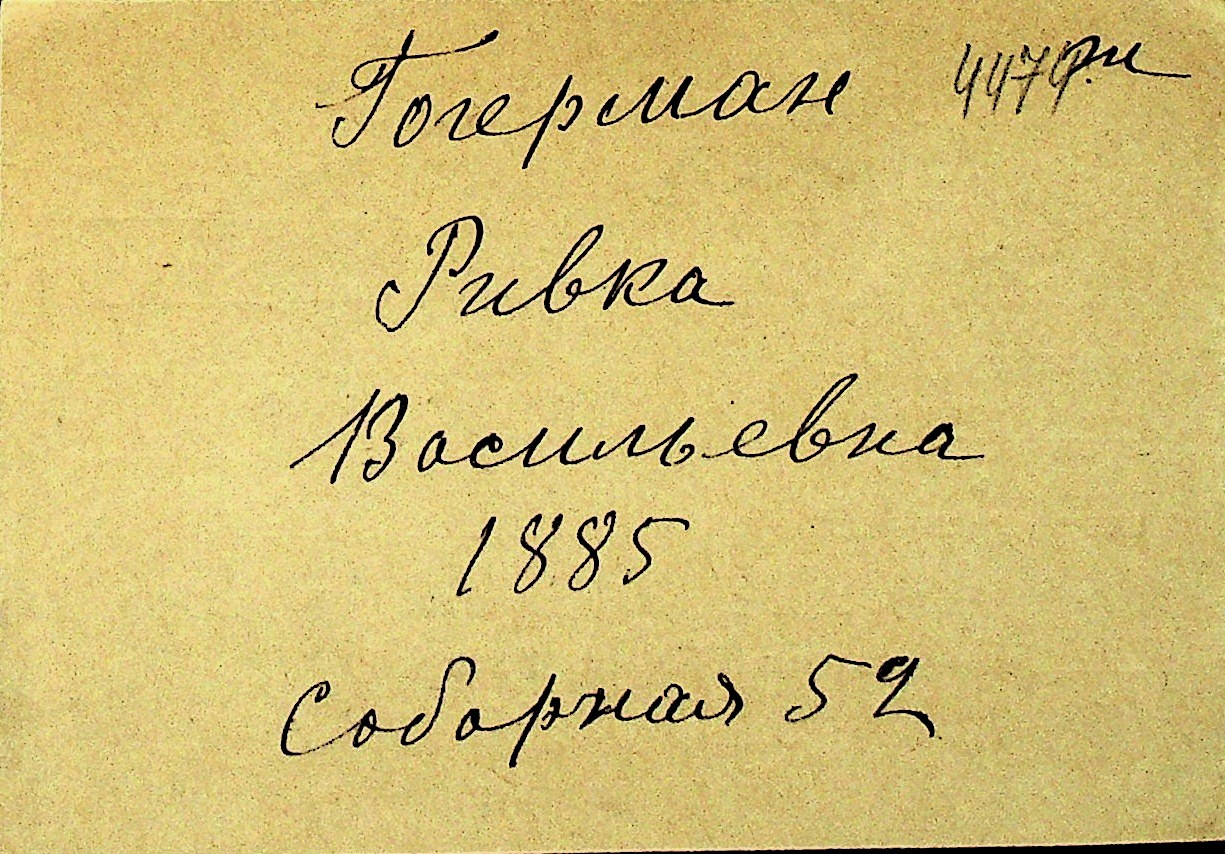 Гогерман
Ривка
Васильевна
1885
Соборная 52